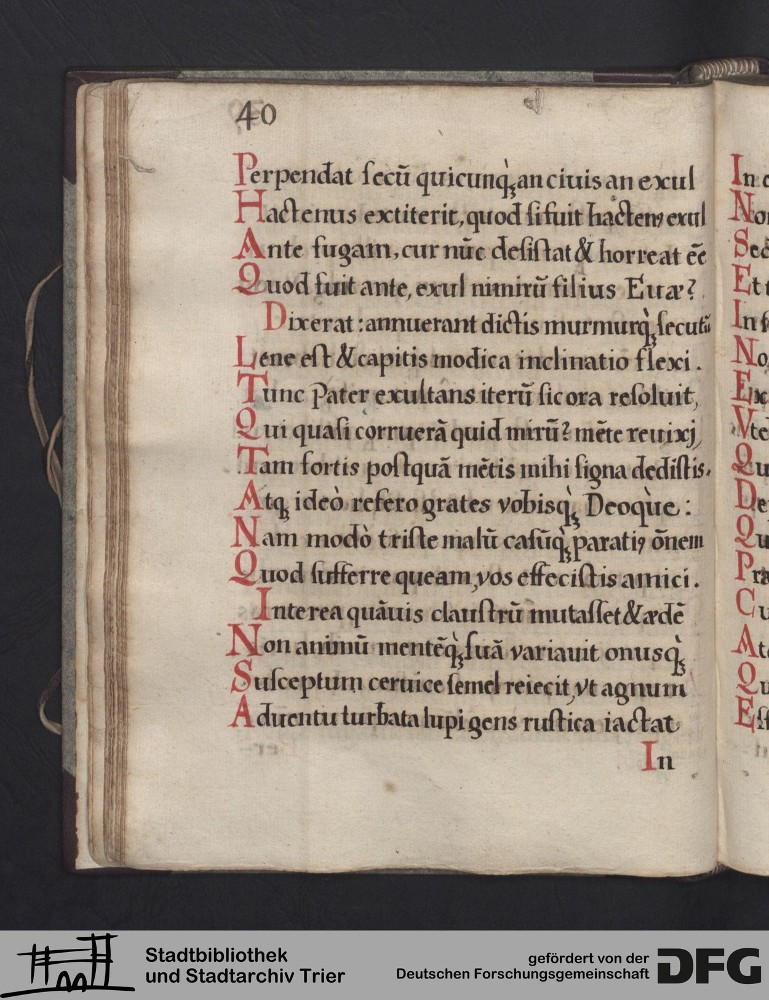 40
Perpendat secū quicunq̀ꝫ an ciuis an exul
Hactenus extiterit, quod si fuit hacten9 exul
Ante fugam, cur nūc desistat & horreat ēē
Quod fuit ante, exul nimirū filius Euæ?
Dixerat: annuerant dictis murmurq̀ꝫ secutū
Lene est & capitis modica inclinatio flexi.
Tunc Pater exultans iterū sic ora resoluit,
Qui quasi corruerā quid mirū? mēte reuixj,
Tam fortis postquā mētis mihi signa dedistis.
Atqꝫ ideò refero grates vobisq̀ꝫ Deoque:
Nam modò triste malū casūq̀ꝫ parati9 ōnem
Quod sufferre queam, vos effecistis amici.
Interea quāuis claustrū mutasset & ædē
Non animū mentēq̀ꝫ suā variauit onusq̀ꝫ
Susceptum ceruice semel reiecit, vt agnum
Aduentu turbata lupi gens rustica iactat
In
In
No
Sed
Et
In
No
Ex
Vt
Qu
De
Qu
Præ
Cu
At
Qu
Ess
Stadtbibliothek
und Stadtarchiv Trier
gefördert von der
Deutschen Forschungsgemeinschaft
DFG